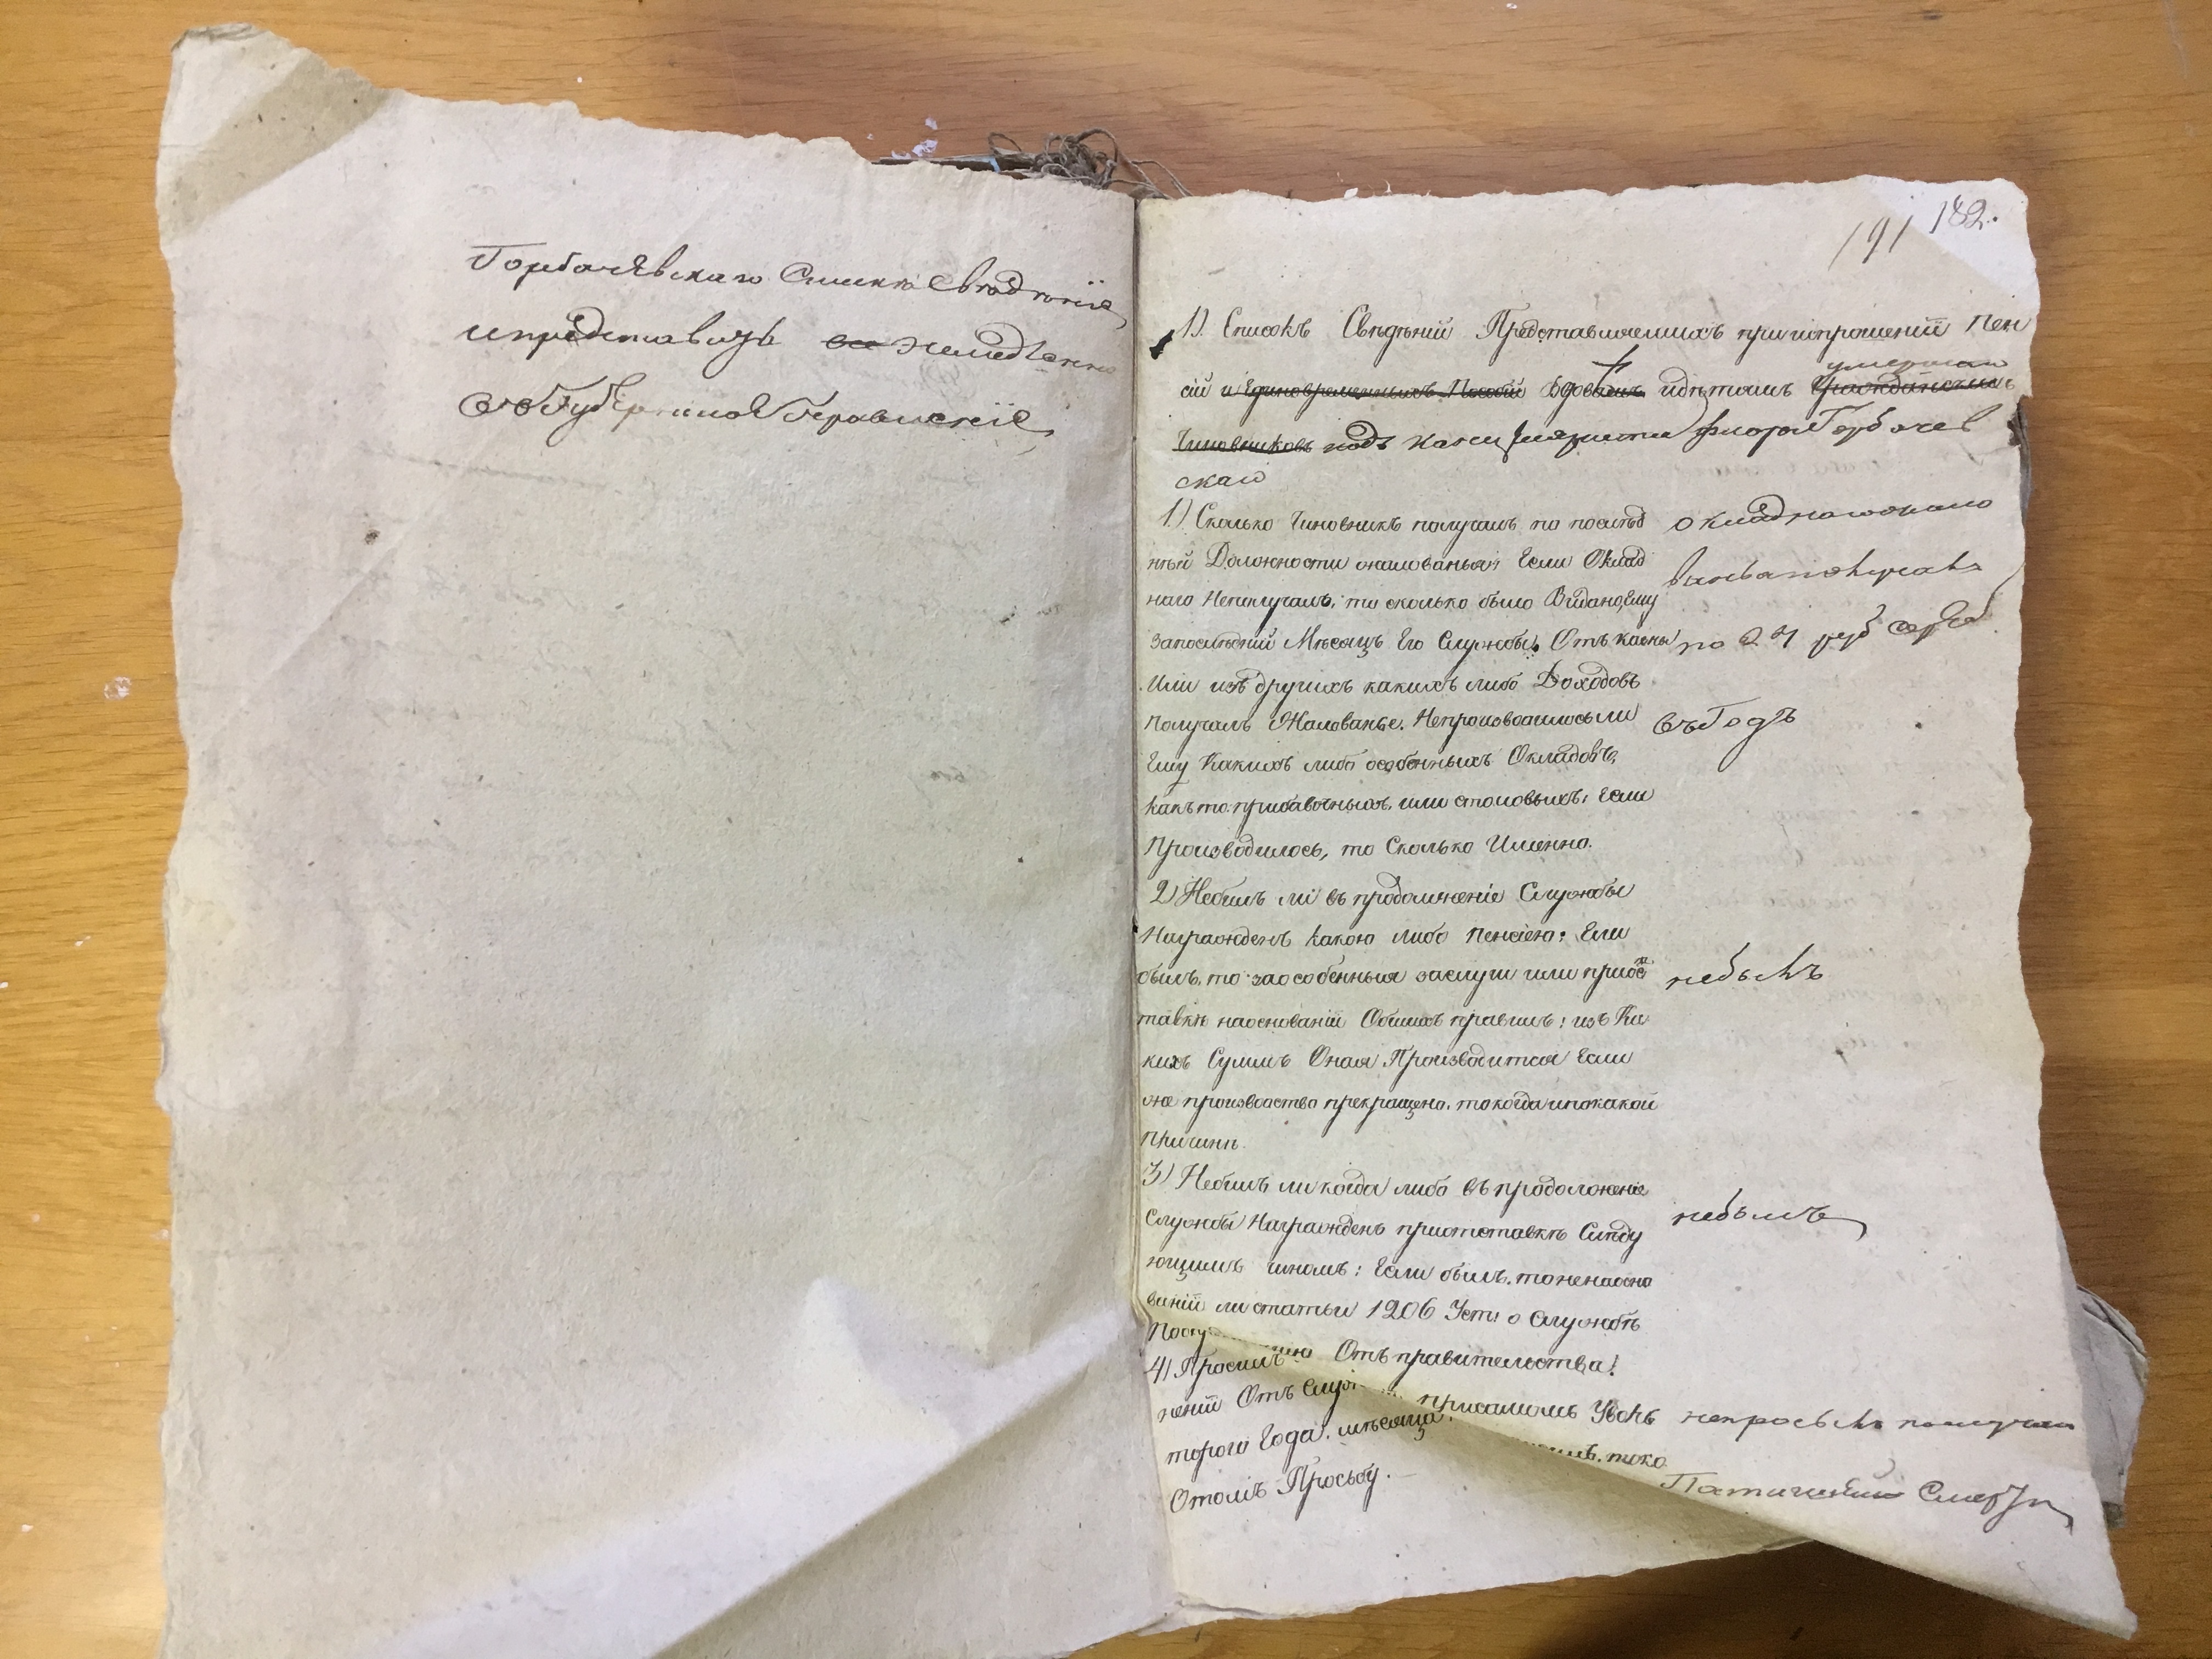 Горбачевскаго Списокъ Сведѣніе
ипредставить немедленно
въ Губернское Правленіе
191 182.
1). Списокъ Свѣдѣній Представляемыхъ приипрошеніи Пен
умершаго
сій и Единовременныхъ Пособій Вдовамъ идѣтямъ Гражданскихъ
Чиновниковъ подъ канцеляриста Флора Горбачев
скаго
1) Сколько Чиновникъ получалъ по послѣд
ней Должности жалованья? Если Оклад
наго Неполучалъ, то сколько было Выдано Ему
запослѣдний Мѣсяцъ Его Службы, Отъ казны
Или изъ другихъ какихъ либо Доходовъ
Получалъ Жалованье. Непроизводилось ли
Ему Какихъ либо особенныхъ Окладовъ,
какъ то прибавочныхъ, или столовыхъ: Если
Производилось, то Сколько Именно.
окладнаго жало
ванья получалъ
по 27 руб сереб
въ Годъ
2) Небылъ ли въ продолженіе Службы
Награжденъ какою либо Пенсіею: Если
былъ, то заособенныя заслуги или приот
тавкѣ наоснованіи Общихъ правилъ: изъ Ка
кихъ Суммъ Оная Производится Если
же производство прекращено, то когда ипокакой
Причинѣ.
небылъ
3) Небылъ ли когда либо въ продолжение
Службы Награжденъ приотставкѣ Слѣду
ющимъ чиномъ: Если былъ, то ненаосно
ваніи ли статьи 1206 Уст: о Службѣ
Отъ правительства!
небылъ
4) Просилъ
неніи Отъ
торого Года, мѣсяца
Отомъ Просьбу.
непросилъ
Смерти